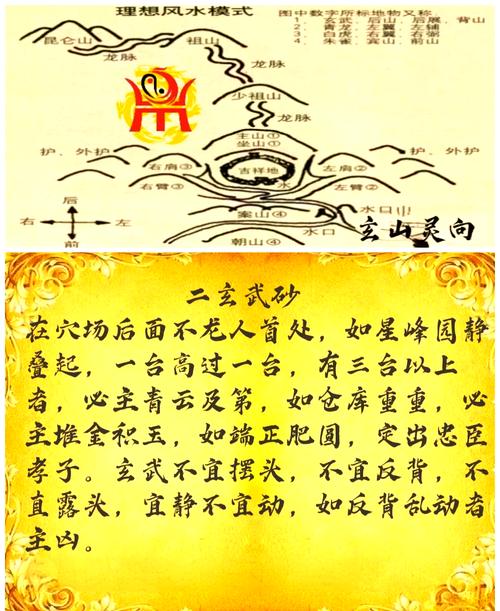 理想风水模式
图中数字所标地物又称
1、玄武、后山、后展、背山
2、青龙、左翼、左辅
3、白虎、右翼、右弼
4、朱雀、宾山、前山
昆仑山
祖山
龙脉
龙脉
少祖山
龙脉
主山①
坐山①
护、外护
护、外护
右肩③
左肩②
吉祥地
右臂③
水
左臂②
后
右
左
前
案山④
水口山
水口
朝山④
玄山灵向
二玄武砂
在穴场后面不龙人首处，如星峰园静
叠起，一台高过一台，有三台以上
者，必主青云及第，如仓库重重，必
主堆金积玉，如端正肥圆，定出忠臣
孝子。玄武不宜摆头，不宜反背，不
直露头，宜静不宜动，如反背乱动者
主凶。